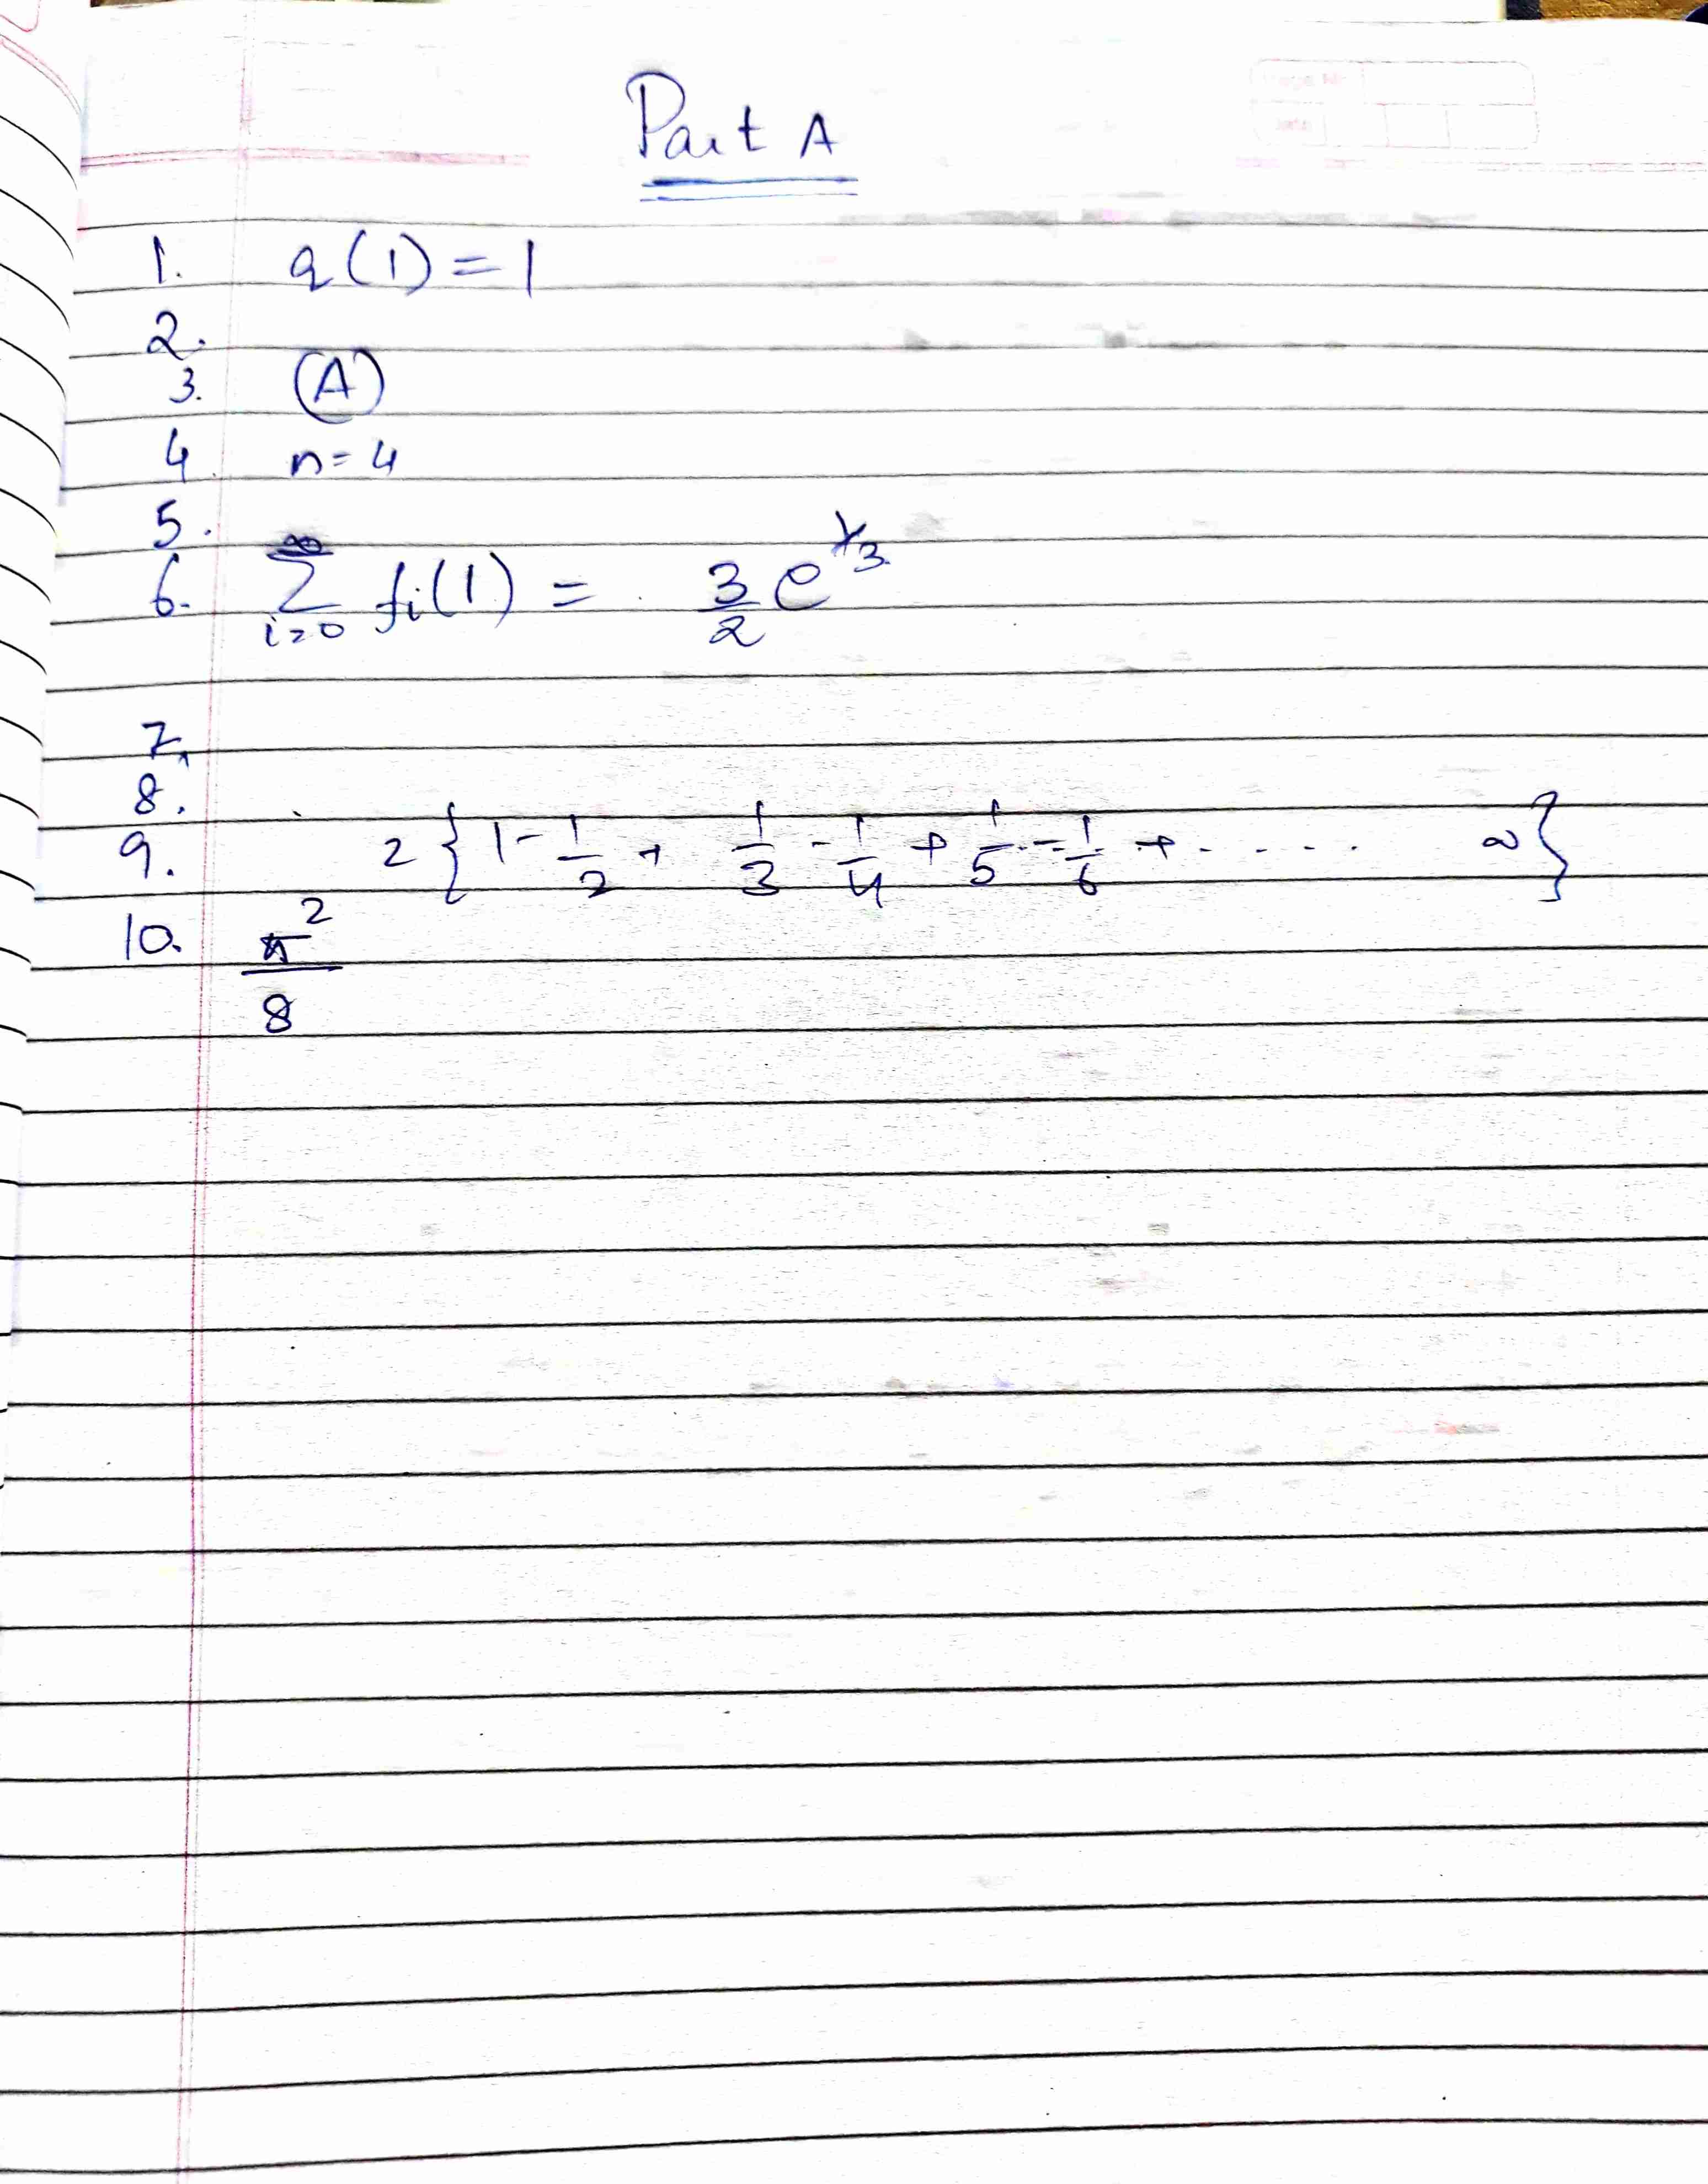 Part A
1. q(1) = 1
2.
3. (A)
4 n = 4
5.
6. ∞∑i=0 fi(1) = 3/2 e^1/3
7.
8.
9. 2 { 1 - 1/2 + 1/3 - 1/4 + 1/5 - 1/6 + ..... ∞ }
10. π²/8